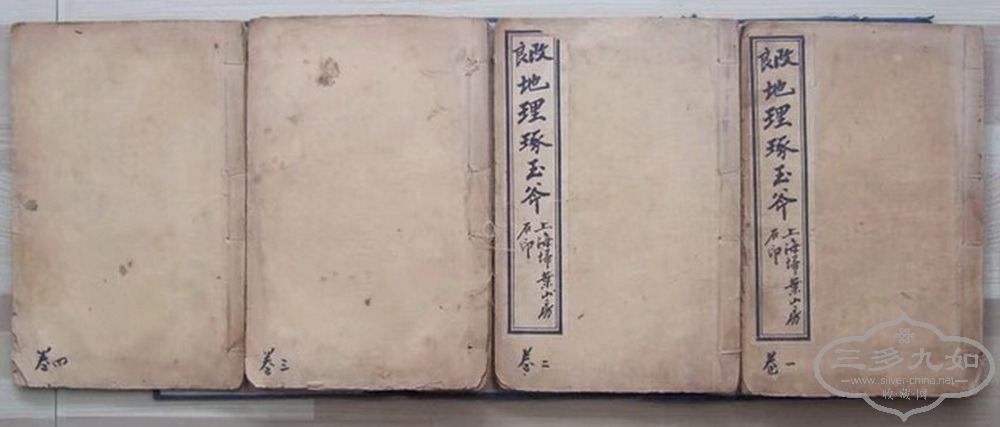 改良地理琢玉斧
上海埽葉山房
石印
卷一
改良地理琢玉斧
上海埽葉山房
石印
卷二
卷三
卷四
三多九如
www.silver-china.net
收藏网